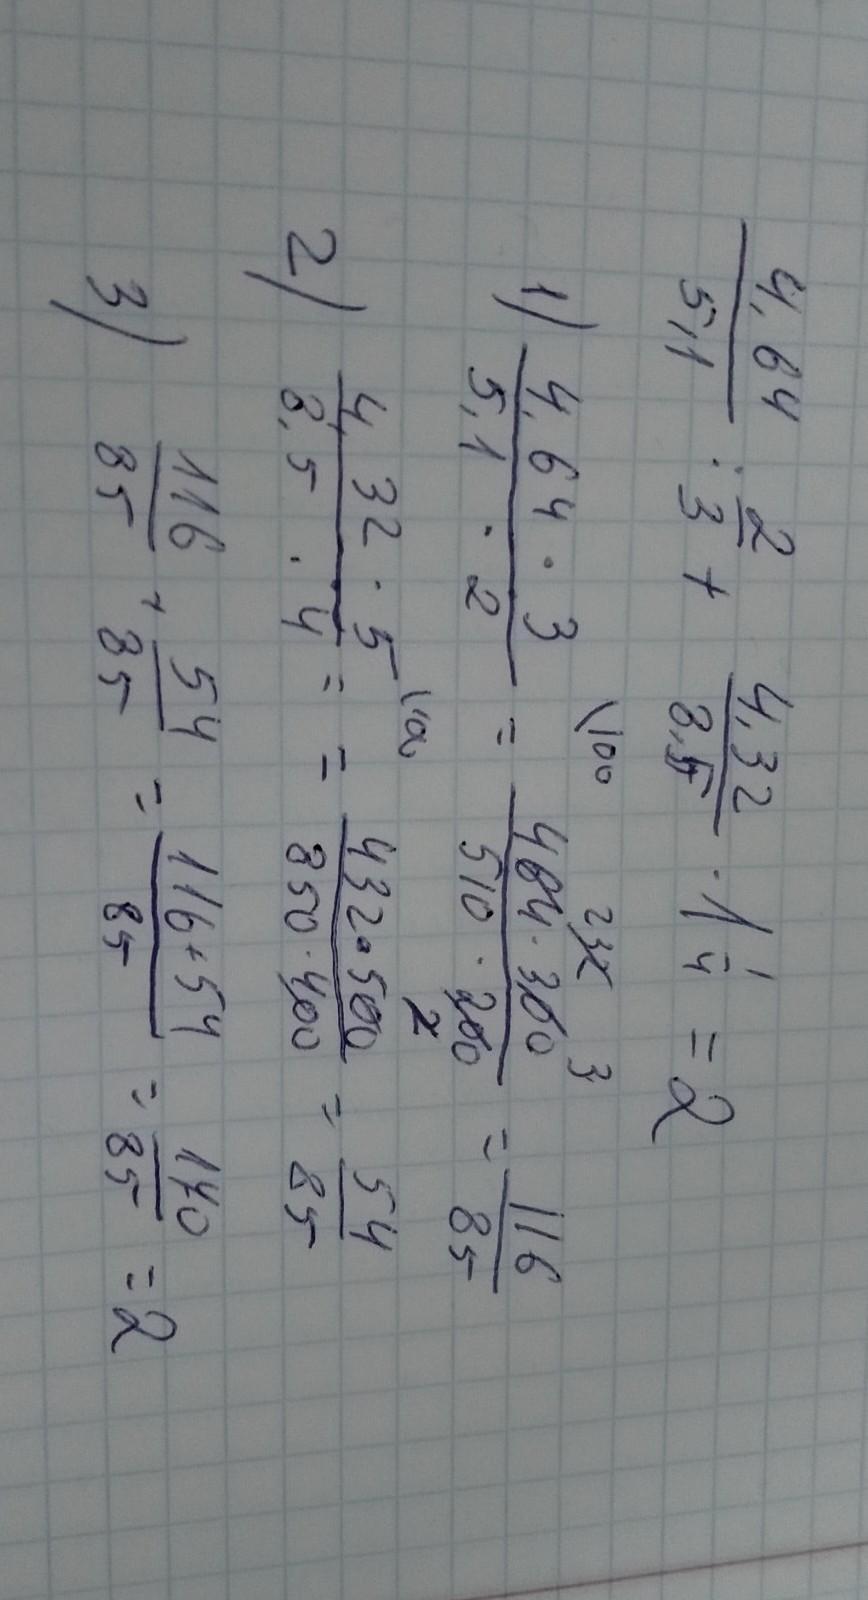 4,64/5,1 : 2/3 + 4,32/8,5 · 1 1/4 = 2
1) 4,64 · 3 / 5,1 · 2 \100 = 464 · 300 / 510 · 200 = 116/85
2) 4,32 · 5 / 8,5 · 4 \100 = = 432 · 500 / 850 · 400 = 54/85
3) 116/85 + 54/85 = 116+54/85 = 170/85 = 2